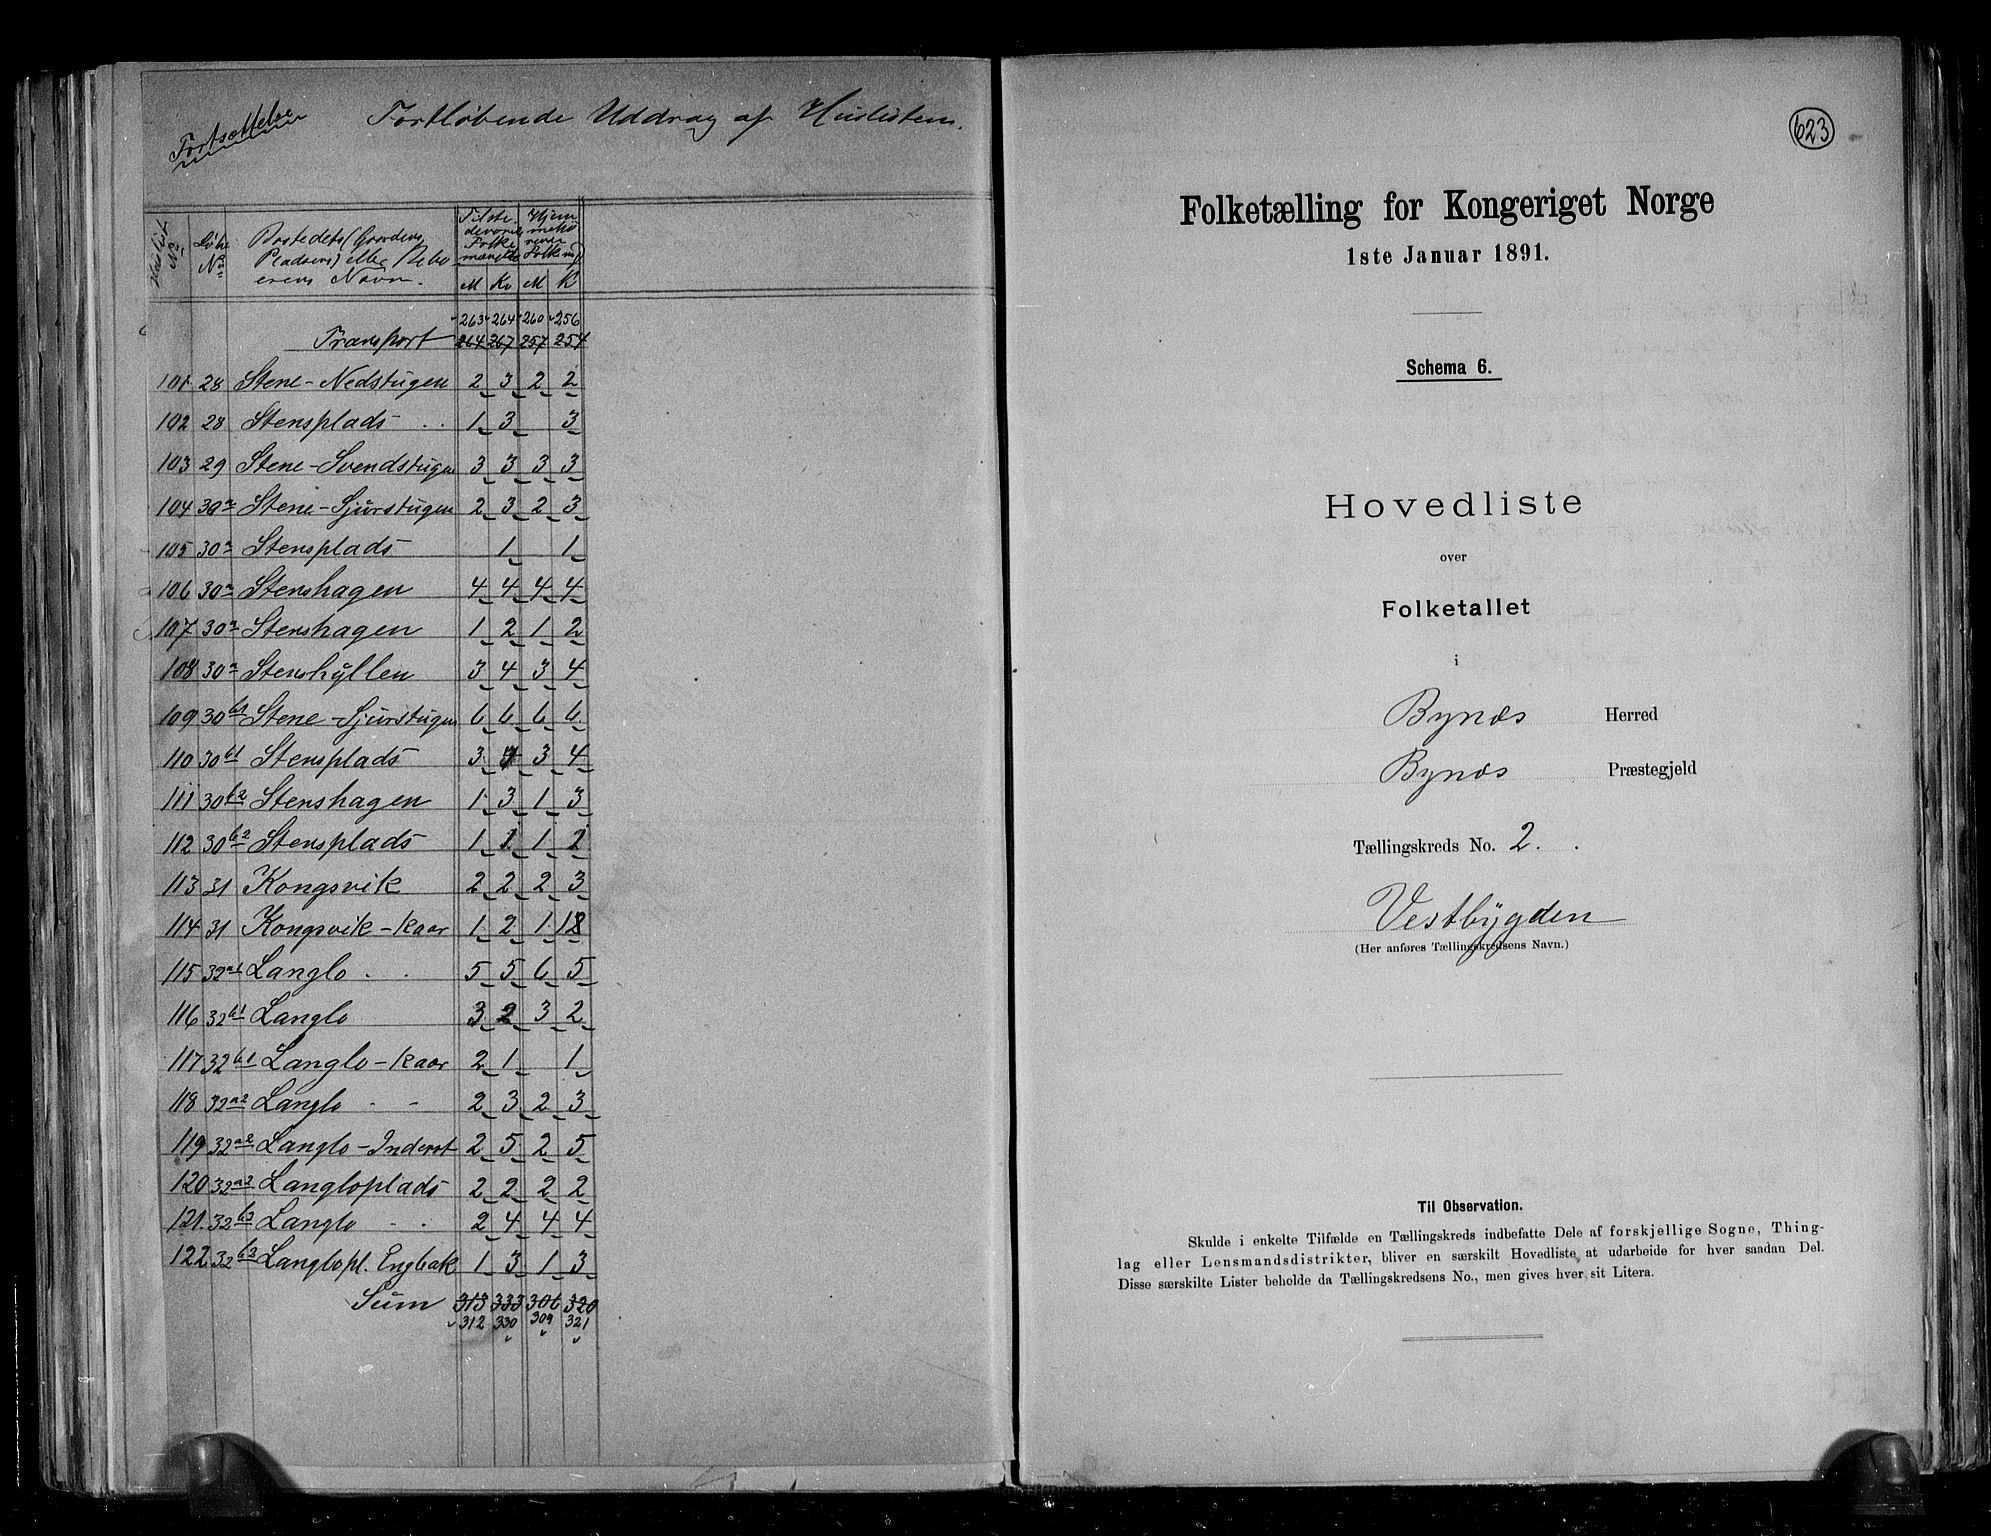 Fortsættelse
Fortløbende Uddrag af Huslisten.
Huslist No Løbe No Bostedets (Gaardens, Pladsens) eller Beboerens Navn. Tilstedeværende Folkemængde Hjemmehørende Folkemgd
M Kv M K
263 264 260 256
Transport 264 267 257 254
101 28 Stene-Nedstugen 2 3 2 2
102 28 Stensplads 1 3 3
103 29 Stene-Svendstugen 3 3 3 3
104 30a Stene-Sjurstugen 2 3 2 3
105 30a Stensplads 1 1
106 30a Stenshagen 4 4 4 4
107 30a Stenshagen 1 2 1 2
108 30a Stenshyllen 3 4 3 4
109 30b1 Stene-Sjurstugen 6 6 6 6
110 30b1 Stensplads 3 4 3 4
111 30b2 Stenshagen 1 3 1 3
112 30b2 Stensplads 1 1 1
113 31 Kongsvik 2 2 2 3
114 31 Kongsvik-Kaar 1 2 1
115 32a1 Langlo 5 5 6 5
116 32b1 Langlo 3 2 3 2
117 32b1 Langlo-Kaar 2 1 1
118 32a2 Langlo 2 3 2 3
119 32a2 Langlo-Inderst 2 5 2 5
120 32a2 Langloplads 2 2 2 2
121. 32b3 Langlo 2 4 4 4
122. 32b3 Langlopl. Engbak 1 3 1 3
Sum 313 333 306 320
312 330 309 321
623
Folketælling for Kongeriget Norge
1ste Januar 1891.
Schema 6.
Hovedliste
over
Folketallet
i
Bynæs Herred
Bynæs Præstegjeld
Tællingskreds No. 2.
Vestbygden
(Her anføres Tællingskredsens Navn.)
Til Observation.
Skulde i enkelte Tilfælde en Tællingskreds indbefatte Dele af forskjellige Sogne, Thing-
lag eller Lensmandsdistrikter, bliver en særskilt Hovedliste at udarbeide for hver saadan Del.
Disse særskilte Lister beholde da Tællingskredsens No., men gives hver sit Litera.